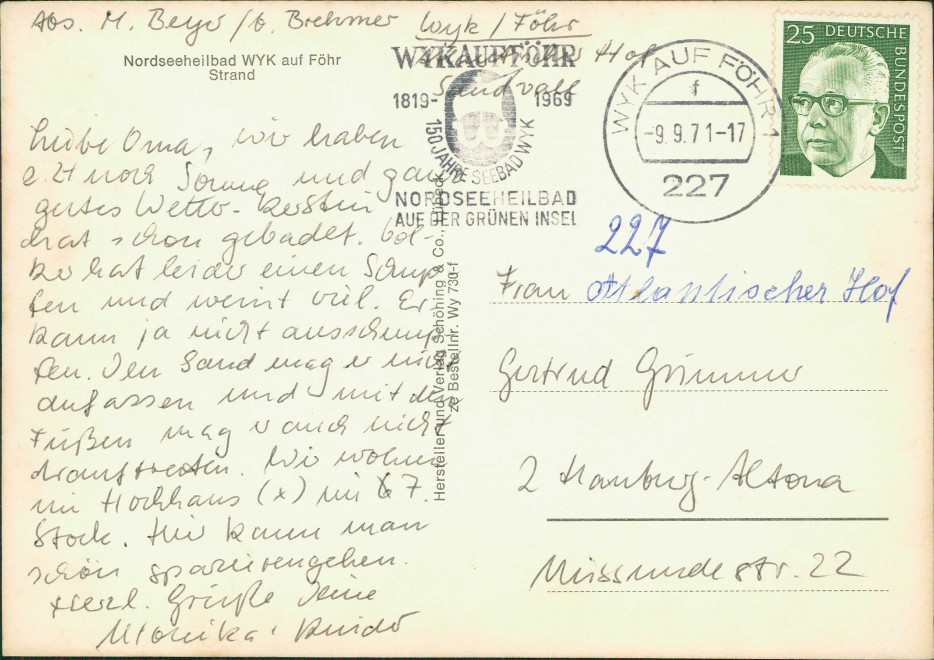 Abs. M. Beyer / b. Brehmer Wyk / Föhr
Atlantischer Hof
Sandwall
Nordseeheilbad WYK auf Föhr
Strand
WYK AUF FÖHR
1819- 1969
150 JAHRE SEEBAD WYK
NORDSEEHEILBAD
AUF DER GRÜNEN INSEL
WYK AUF FÖHR 1
f
-9.9.71-17
227
25 DEUTSCHE
BUNDESPOST
Liebe Oma, wir haben
z. Zt noch Sonne und ganz
gutes Wetter. Kerstin
hat schon gebadet. Vol-
ker hat leider einen Schnup-
fen und weint viel. Er
kann ja nicht ausschnup-
fen. Den Sand mag er nicht
anfassen und mit den
Füßen mag er auch nicht
drauftreten. Wir wohnen
im Hochhaus (x) im 7.
Stock. Hier kann man
schön spazierengehen.
Herzl. Grüße Deine
Monika
Hersteller und Verlag Schöning & Co., Lübeck
Bestellnr. Wy 730-f
227
Frau Atlantischer Hof
Gertrud Grimmer
2 Hamburg-Altona
Missundestr. 22